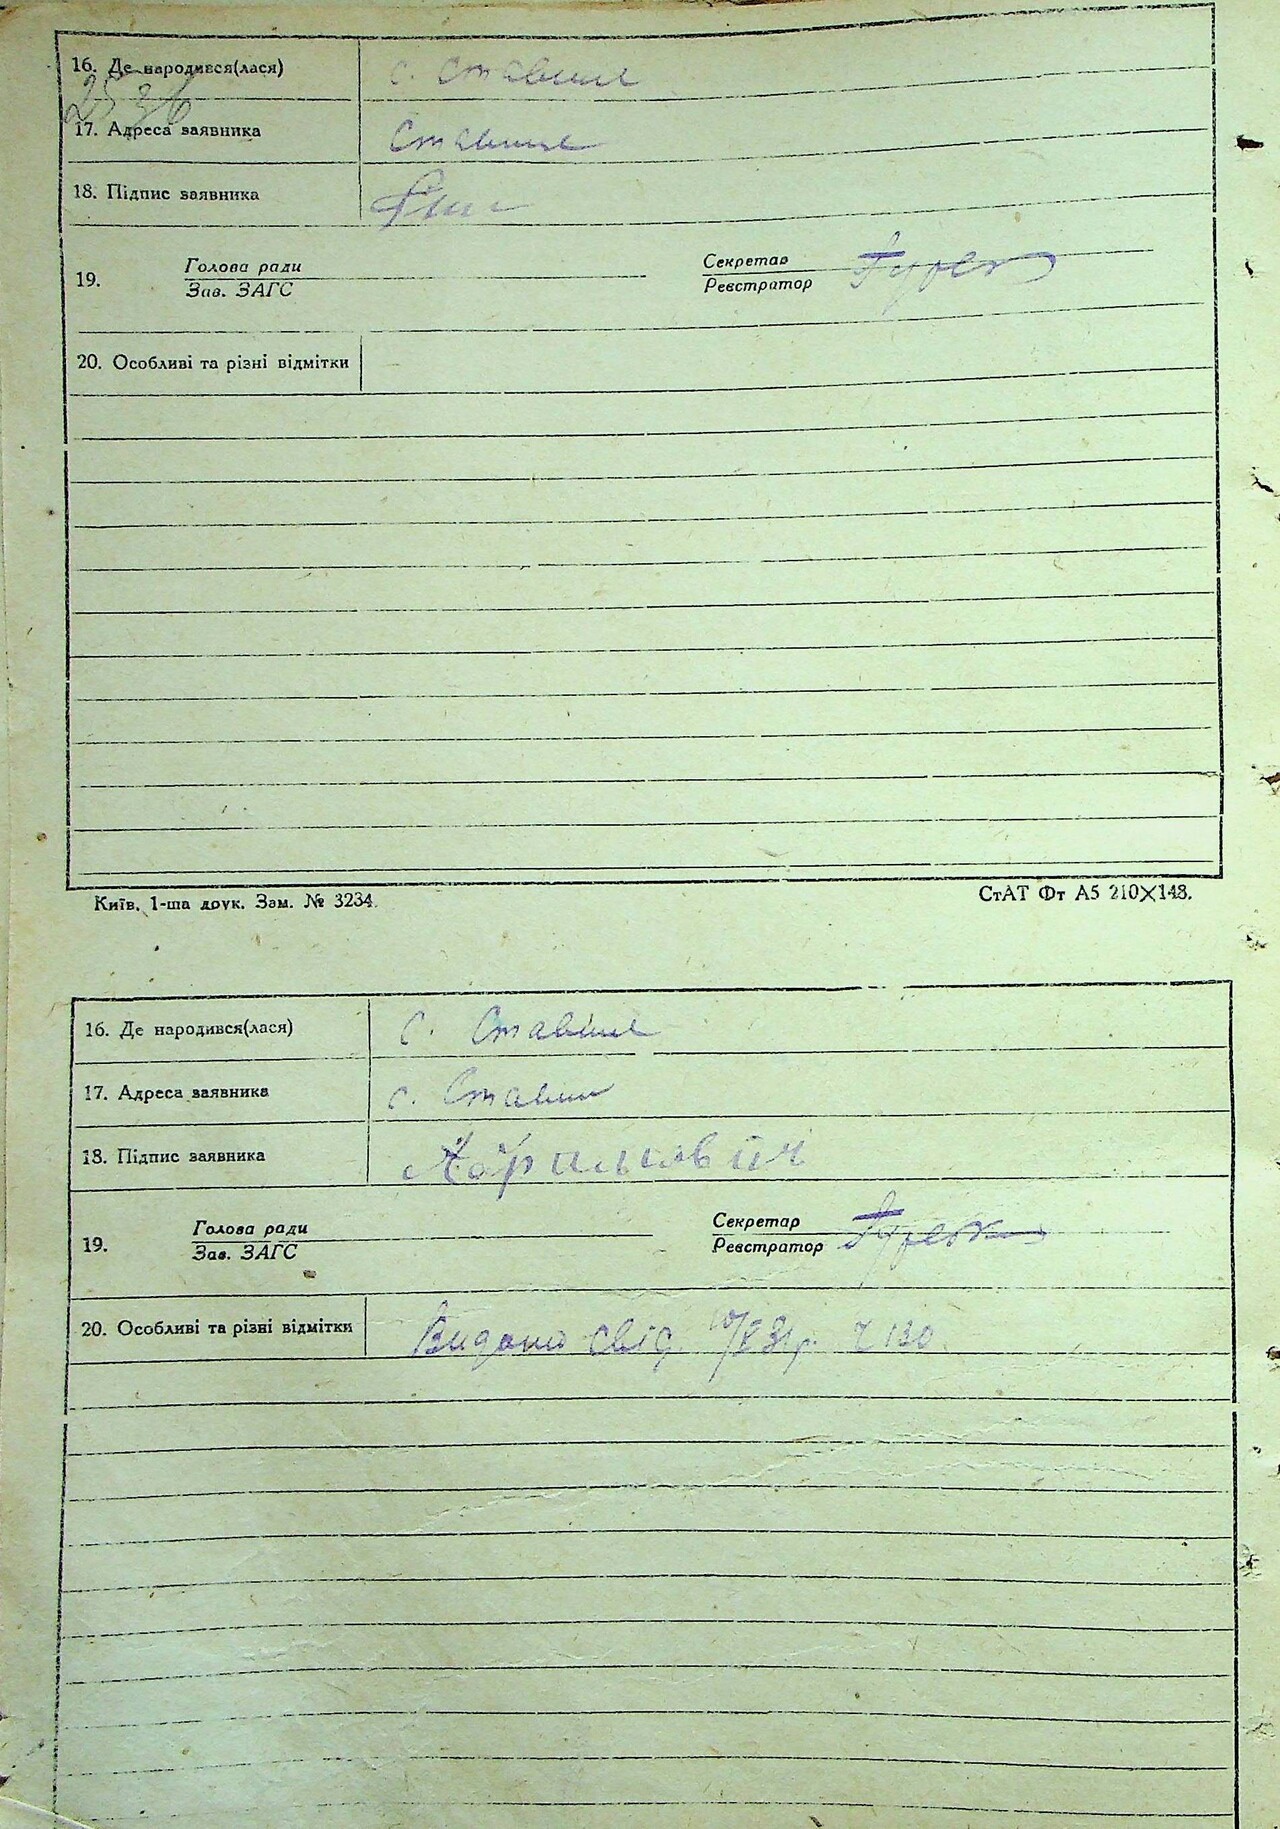 16. Де народився(лася) с. Ставище
25 зв
17. Адреса заявника Ставище
18. Підпис заявника
19. Голова ради Секретар
Зав. ЗАГС Реєстратор
20. Особливі та різні відмітки
Київ, 1-ша друк. Зам. № 3234.
СтАТ Фт А5 210×148.
16. Де народився(лася) с. Ставище
17. Адреса заявника с. Ставищи
18. Підпис заявника
19. Голова ради Секретар
Зав. ЗАГС Реєстратор
20. Особливі та різні відмітки Видано свід. 10/X 31р. Ч 130